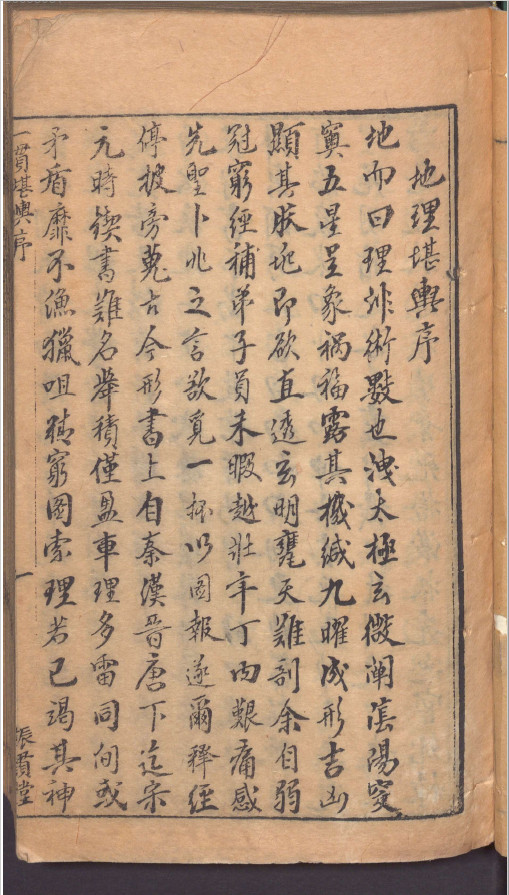 地理堪輿序
地而曰理非術數也洩太極玄微闡陰陽窔
窽五星呈象禍福露其機緘九曜成形吉凶
顯其朕兆即欲直透玄明甕天難剖余自弱
冠窮經補弟子員未暇越壯年丁內艱痛感
先聖卜兆之言欲覓一抔以圖報遂爾釋經
停披旁蒐古今形書上自秦漢晉唐下迄宋
元時鍥書難名舉積僅盈車理多雷同間或
矛盾靡不漁獵咀猜窮圖索理若已竭其神
一貫堪輿序
一
振貫堂